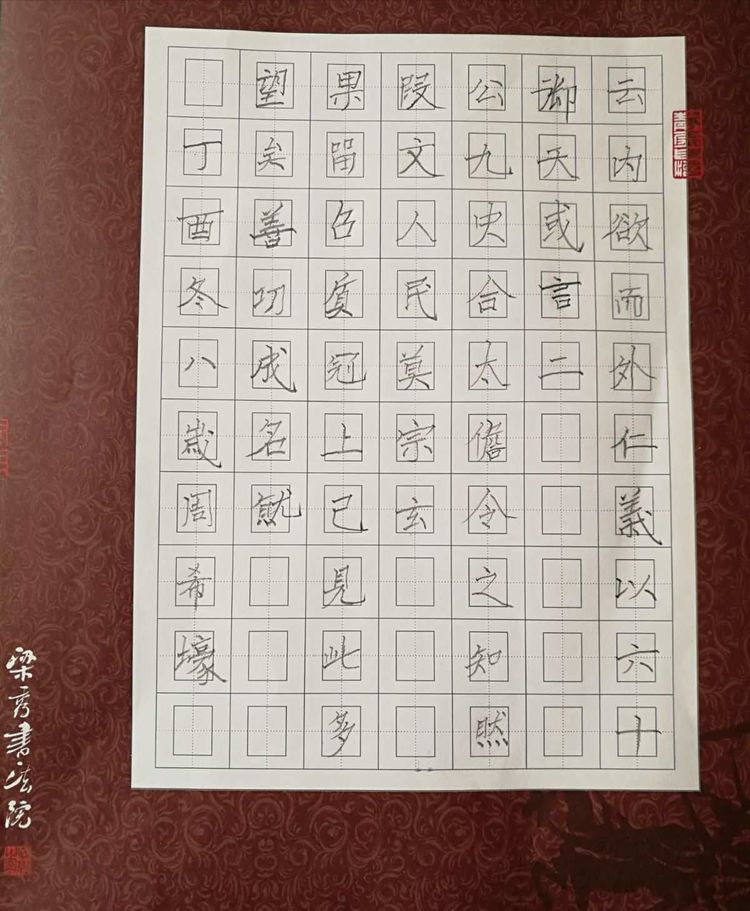 云内欲而外仁義以六十
天或言二
公九史合太儋令之知然
段文人民莫宗玄
果留召質冠上已見此多
望矣善功成名就
丁酉冬八歲周希壕
梁秀書法院